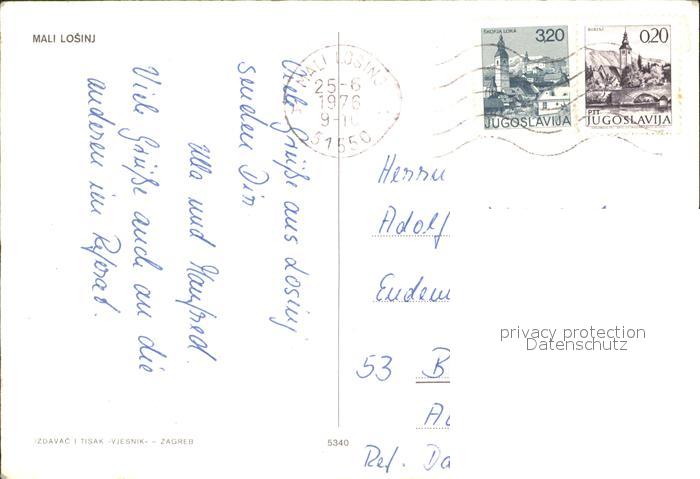 MALI LOŠINJ
Viele Grüße aus Losinj
senden Dir
Ulla und Manfred.
Viele Grüße auch an die
anderen im Referat.
MALI LOŠINJ
25-6
1976
51550
ŠKOFJA LOKA
3,20
JUGOSLAVIJA
0,20
PTT JUGOSLAVIJA
Herrn
Adolf
Endem
53 B
Ref. Da
privacy protection
Datenschutz
IZDAVAČ I TISAK »VJESNIK« – ZAGREB
5340